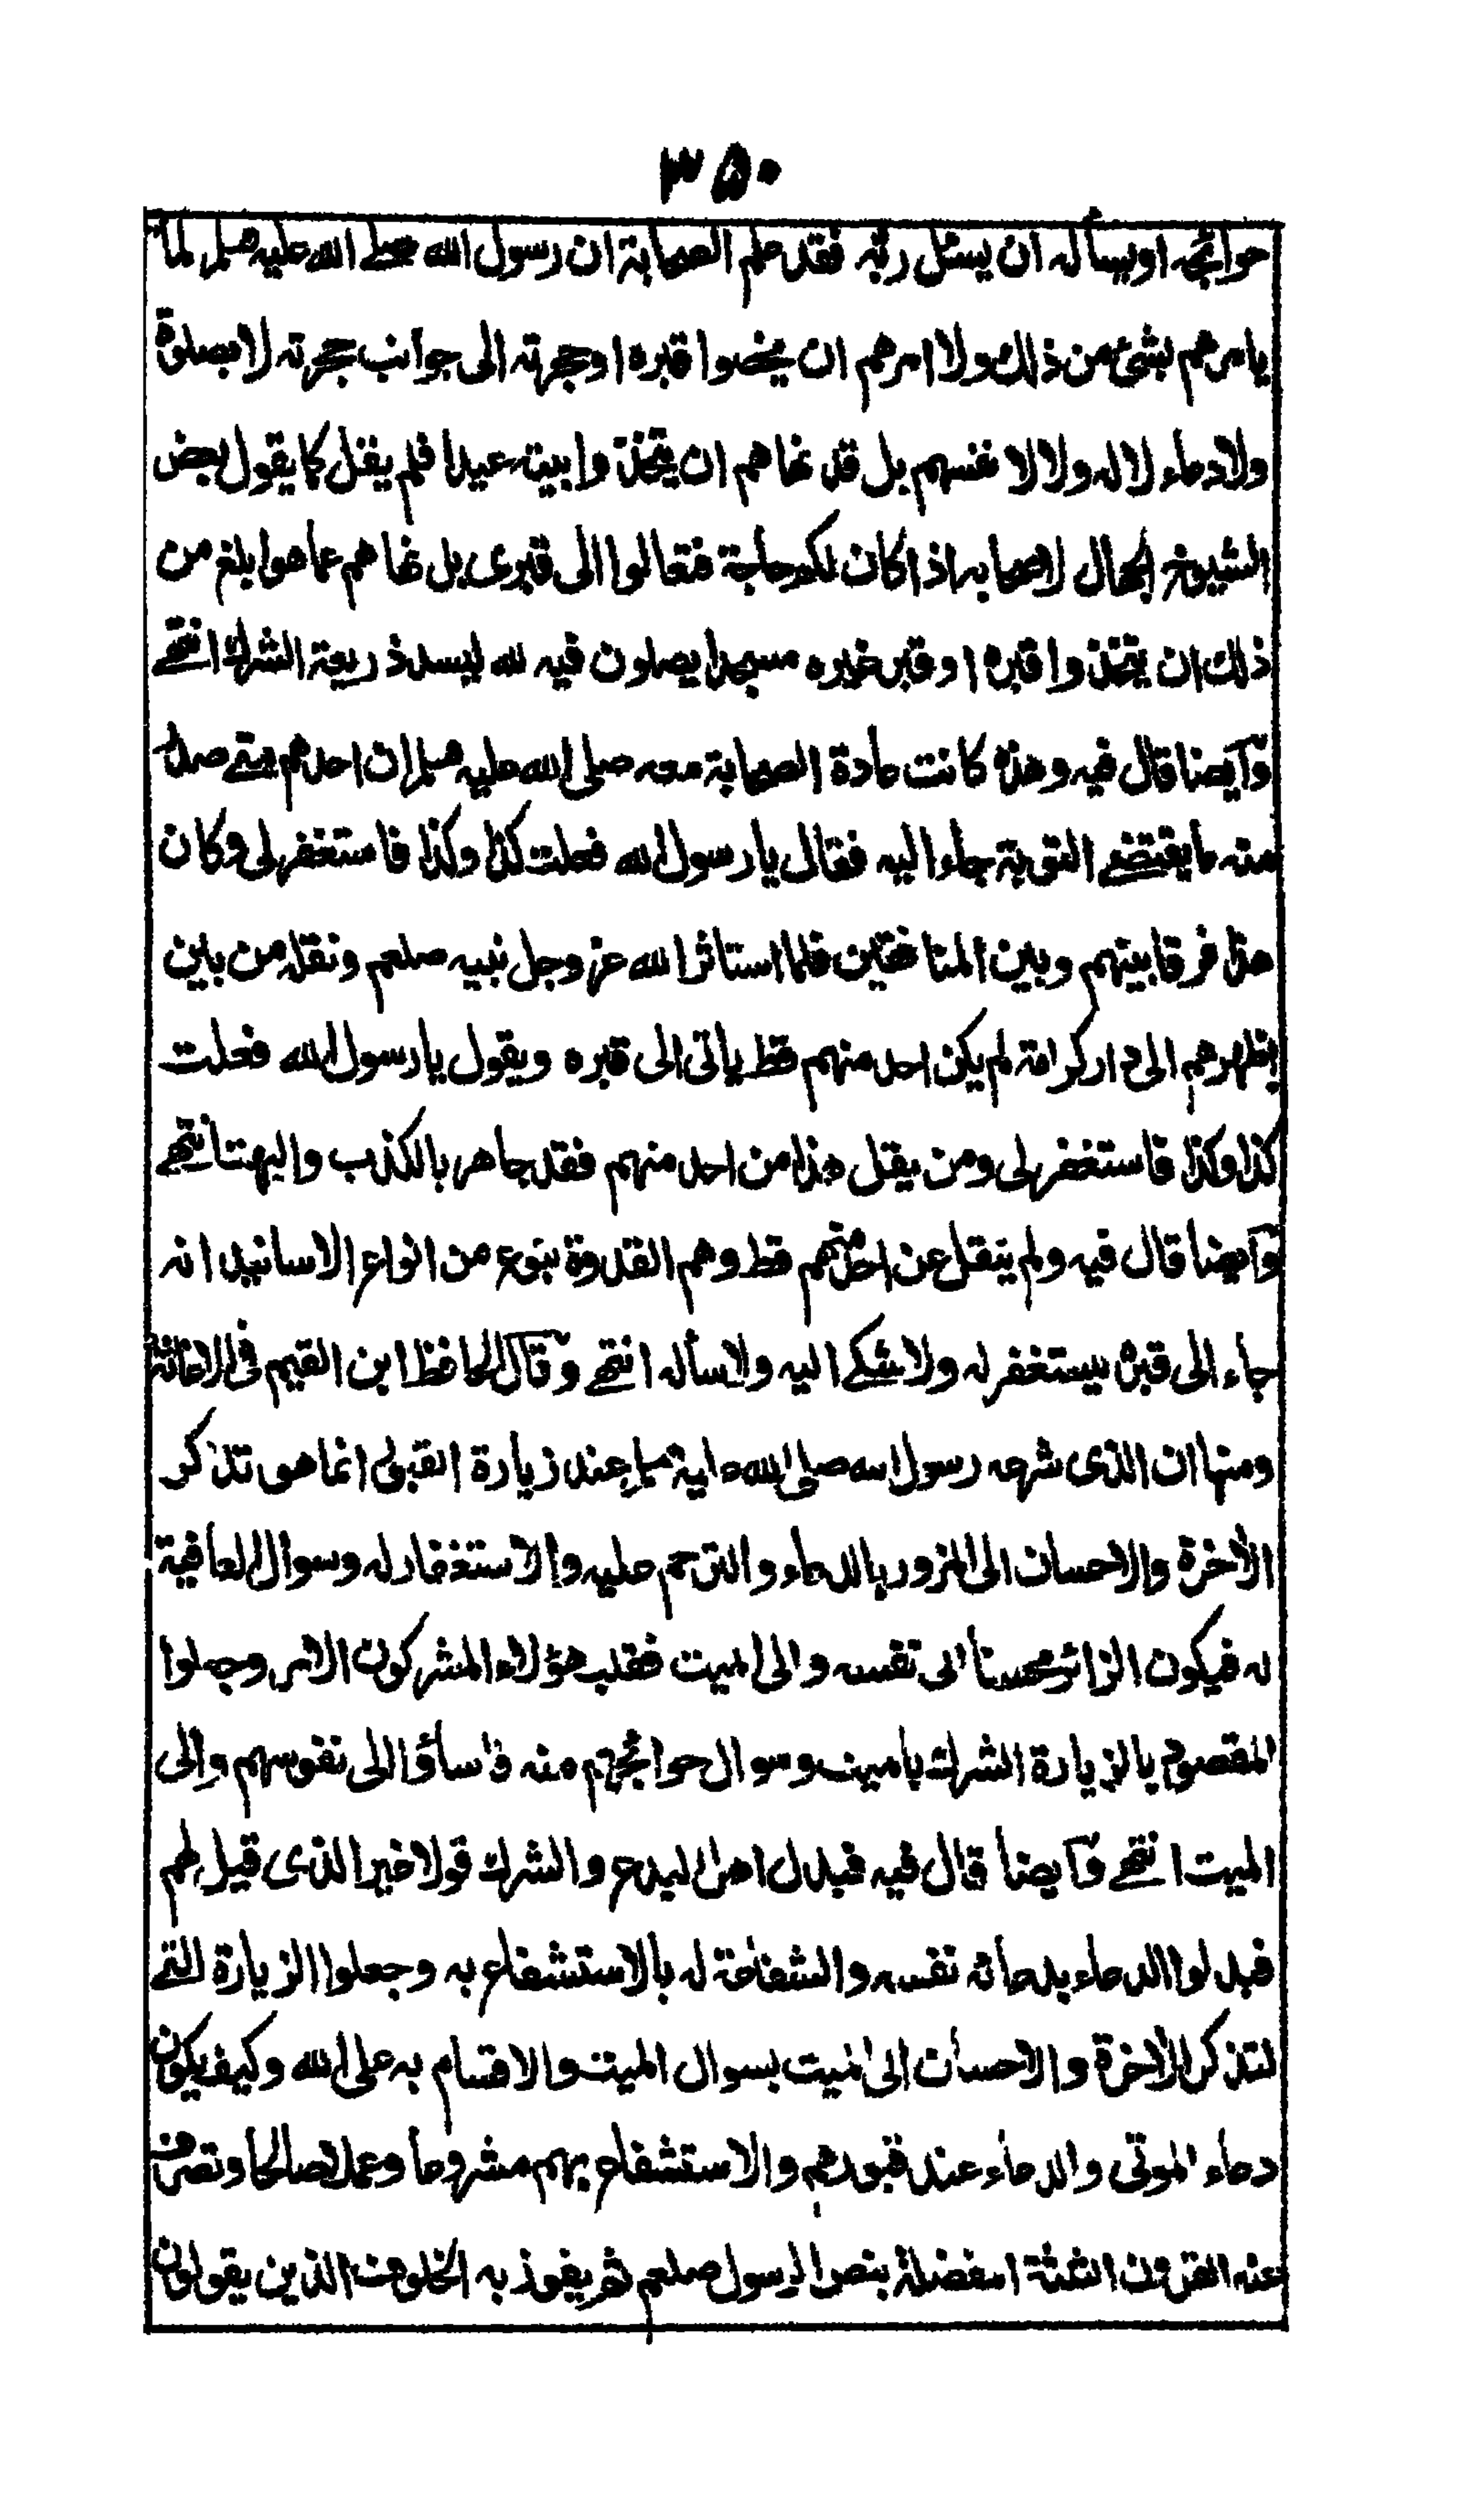 ٣٥٠
حوائجه او يسأله ان يسئل ربه فقد علم الصحابة ان رسول الله صلى الله عليه وسلم لم
يامرهم بشئ من ذلك ولا امرهم ان يخصوا قبره او حجرته الى جوانب حجرته لا بصلوة
ولا دعاء لا له ولا لا نفسهم بل قد نهاهم ان يتخذوا بيته عيدا فلم يقل كما يقول بعض
الشيوخ الجهال لاصحابه اذا كان لكم حاجة فتعالوا الى قبرى بل نهاهم عما هو ابلغ من
ذلك ان يتخذوا قبره او قبر غيره مسجدا يصلون فيه لله ليسد ذريعة الشرك انتهى
وآيضا قال فيه وهذه كانت عادة الصحابة معه صلى الله عليه وسلم ان احدهم متى صدر
منه ما يقتضى التوبة جاء اليه فقال يا رسول الله فعلت كذا وكذا فاستغفر لى وكان
هذا فرقا بينهم وبين المنافقين فلما استاثر الله عز وجل نبيه صلعم ونقله من بين
اظهرهم الى دار كرامته لم يكن احد منهم قط ياتى الى قبره ويقول يا رسول الله فعلت
كذا وكذا فاستغفر لى ومن يقل هذا من احد منهم فقد جاهر بالكذب والبهتا انتهى
وآيضا قال فيه ولم ينقل عن احد منهم قط وهم القدوة بنوع من انواع الاسانيد انه
جاء الى قبره ليستغفر له ولا شكى اليه ولا سأله انتهى وقال الحافظ ابن القيم فى الاغاثة
ومنها ان الذى شرعه رسول الله صلى الله عليه وسلم عند زيارة القبور انما هو تذكر
الأخرة والاحسان الى المزور بالدعاء والترحم عليه والاستغفار له وسوال العافية
له فيكون الزائر محسنا الى نفسه والى الميت فقلب هؤلاء المشركون الامر وجعلوا
المقصود بالزيارة الشرك بالميت وسوال حوائجهم منه فأساؤا الى نفوسهم والى
الميت انتهى وآيضا قال فيه فبدل اهل البدع والشرك قولا غير الذى قيل لهم
فبدلوا الدعاء بدعائه نفسه والشفاعة له بالاستشفاع به وجعلوا الزيارة التى
لتذكر الأخرة والاحسان الى الميت بسوال الميت والاقسام به على الله وكيف يكون
دعاء الموتى والدعاء عند قبورهم والاستشفاع بهم مشروعا وعملا صالحا وتصرف
عنه القرون الثلثة المفضلة بنص الرسول صلعم ثم يفوز به الخلوف الذين يقولون